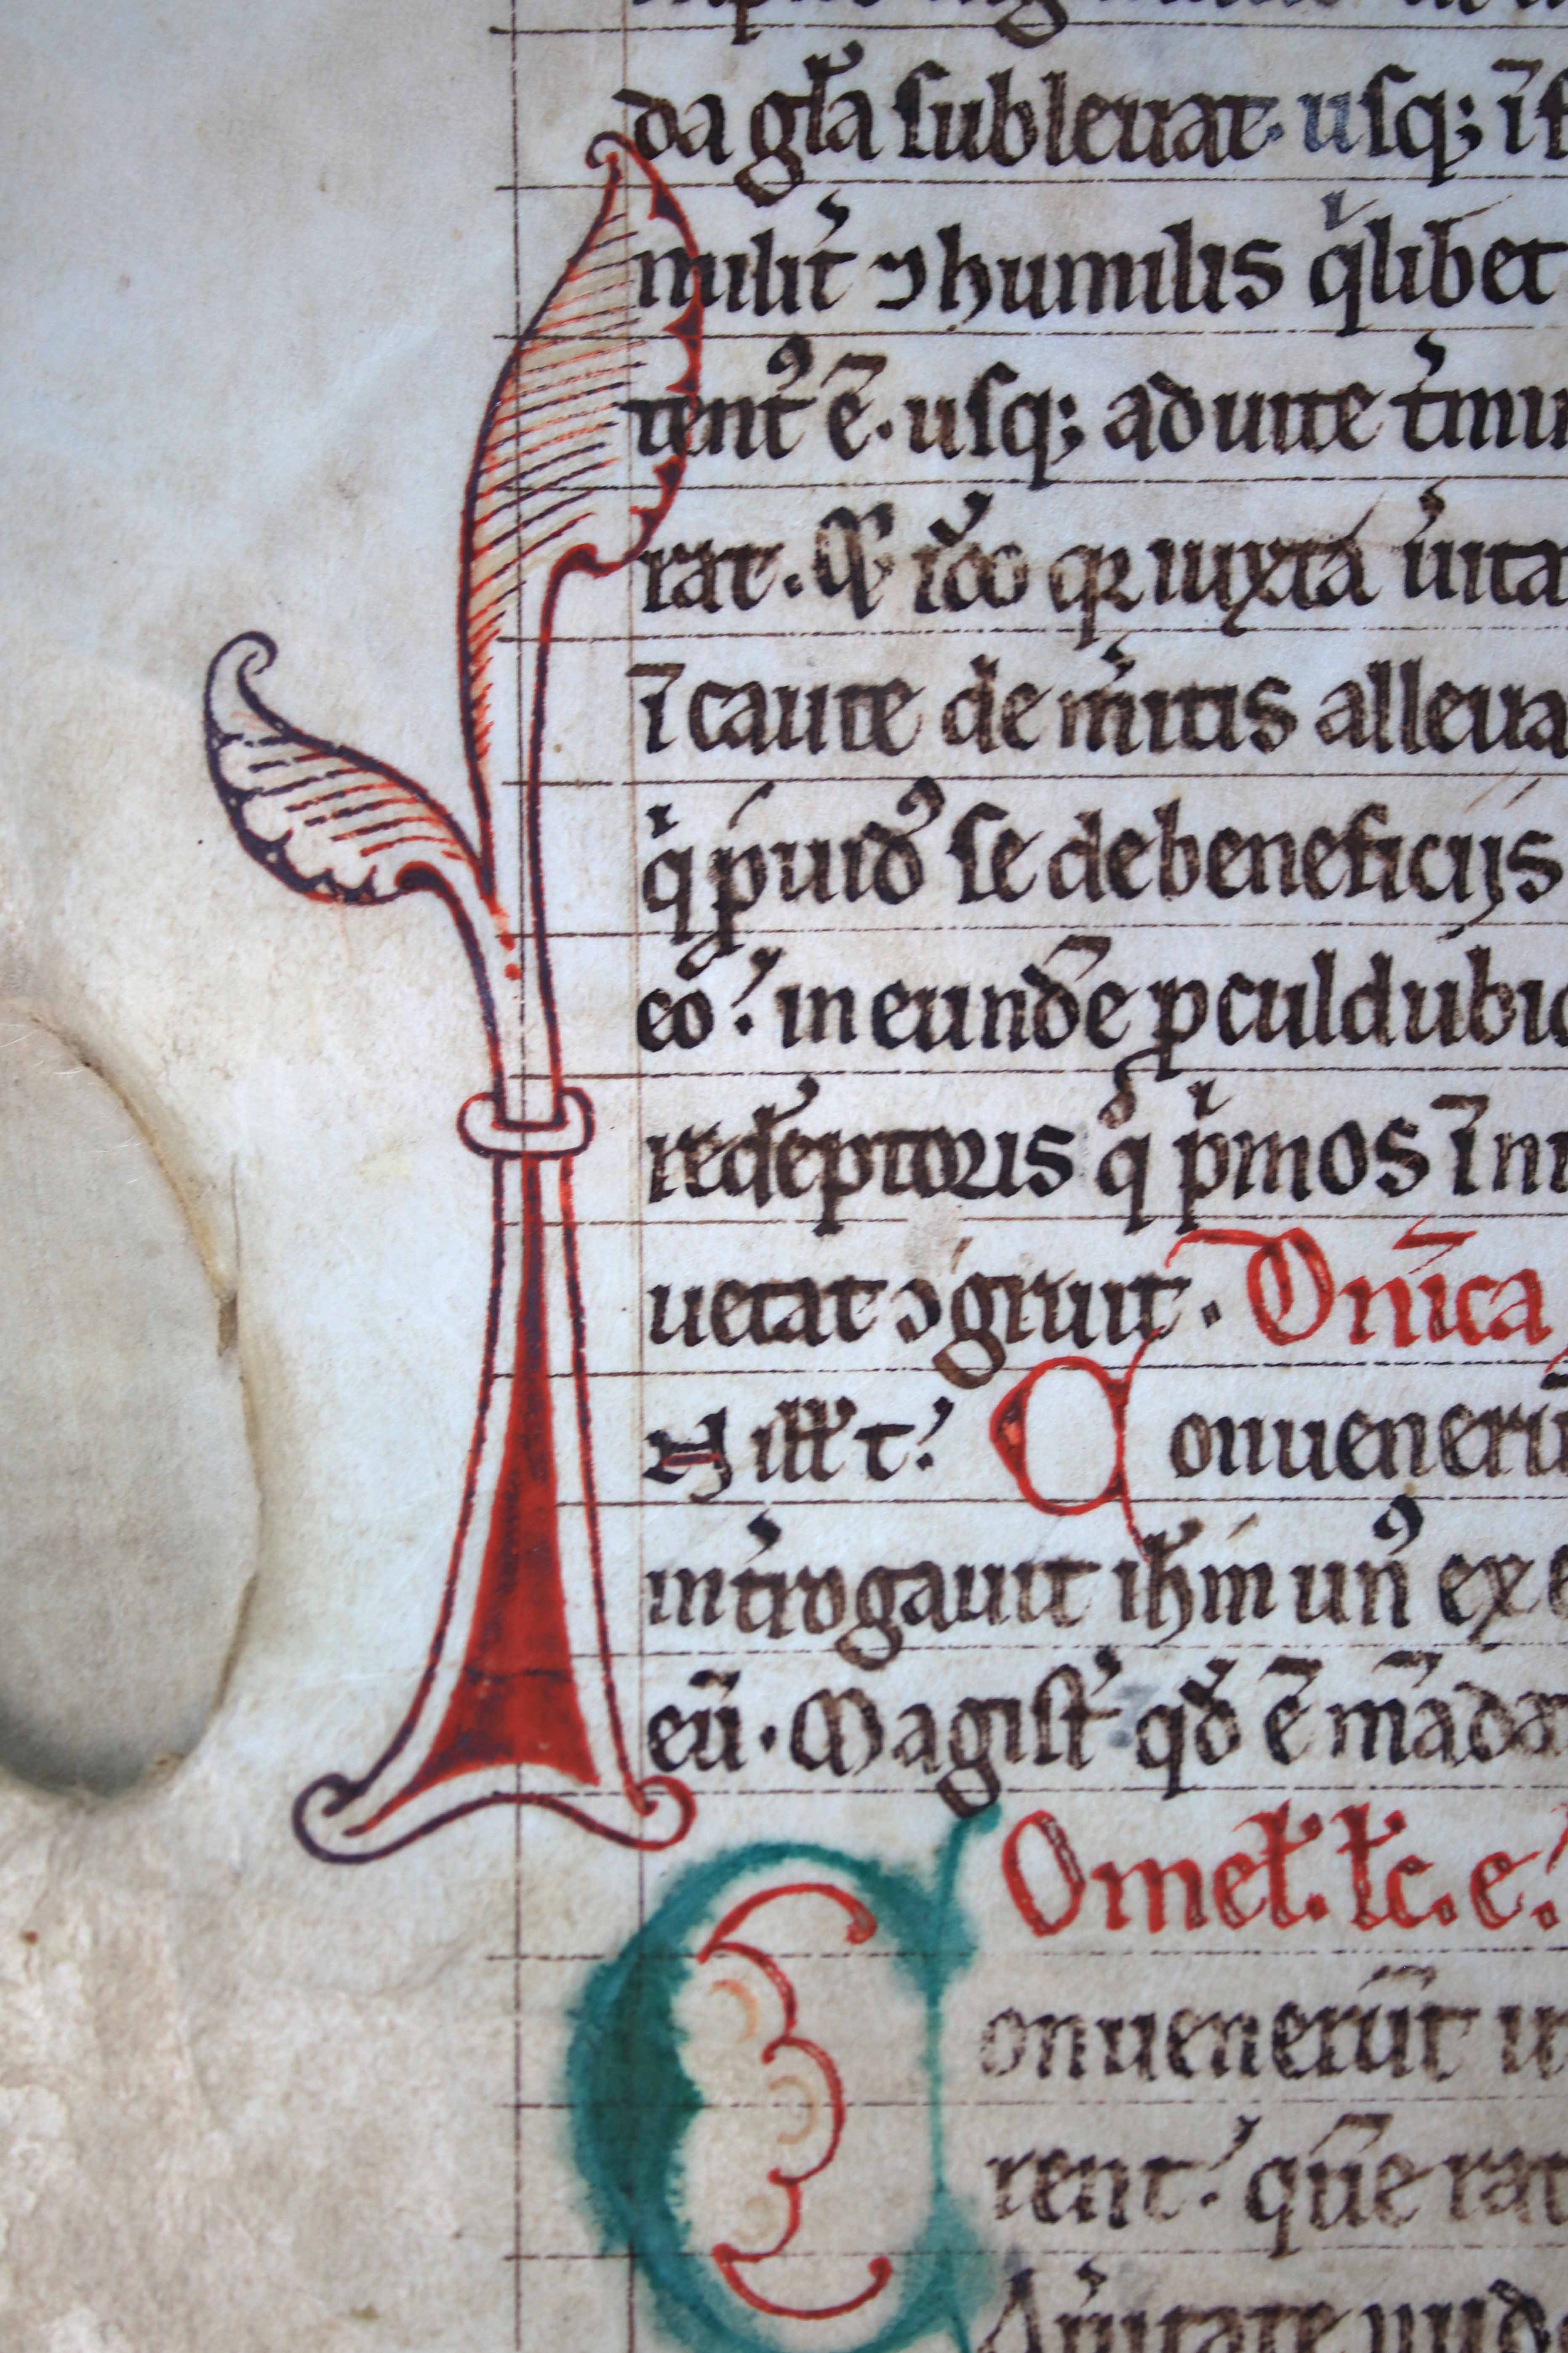 da gl̄a subleuat. usq; ī
milit̓ ⁊ humilis qͥlibet
tent᷒ ē. usq; ad uite t̓mi
rat. iđo qꝛ iuxta u̓ita
ī caute de m̓itis alleua
qͥ ꝓuid᷒ se de beneficijs
eo. in eundē ꝓculdubio
redēptoris qͥ pͥmos īni
uetat ꝯgruit. Dn̄ica
N ill̓ t̓. Conuenerū
int̓rogauit ih̄m un᷒ ex e
eū. Magist̓ qđ ē mādat
Omel̓. l̓c. e.
Conuenerūt u
rent. que rat
diuitate nud